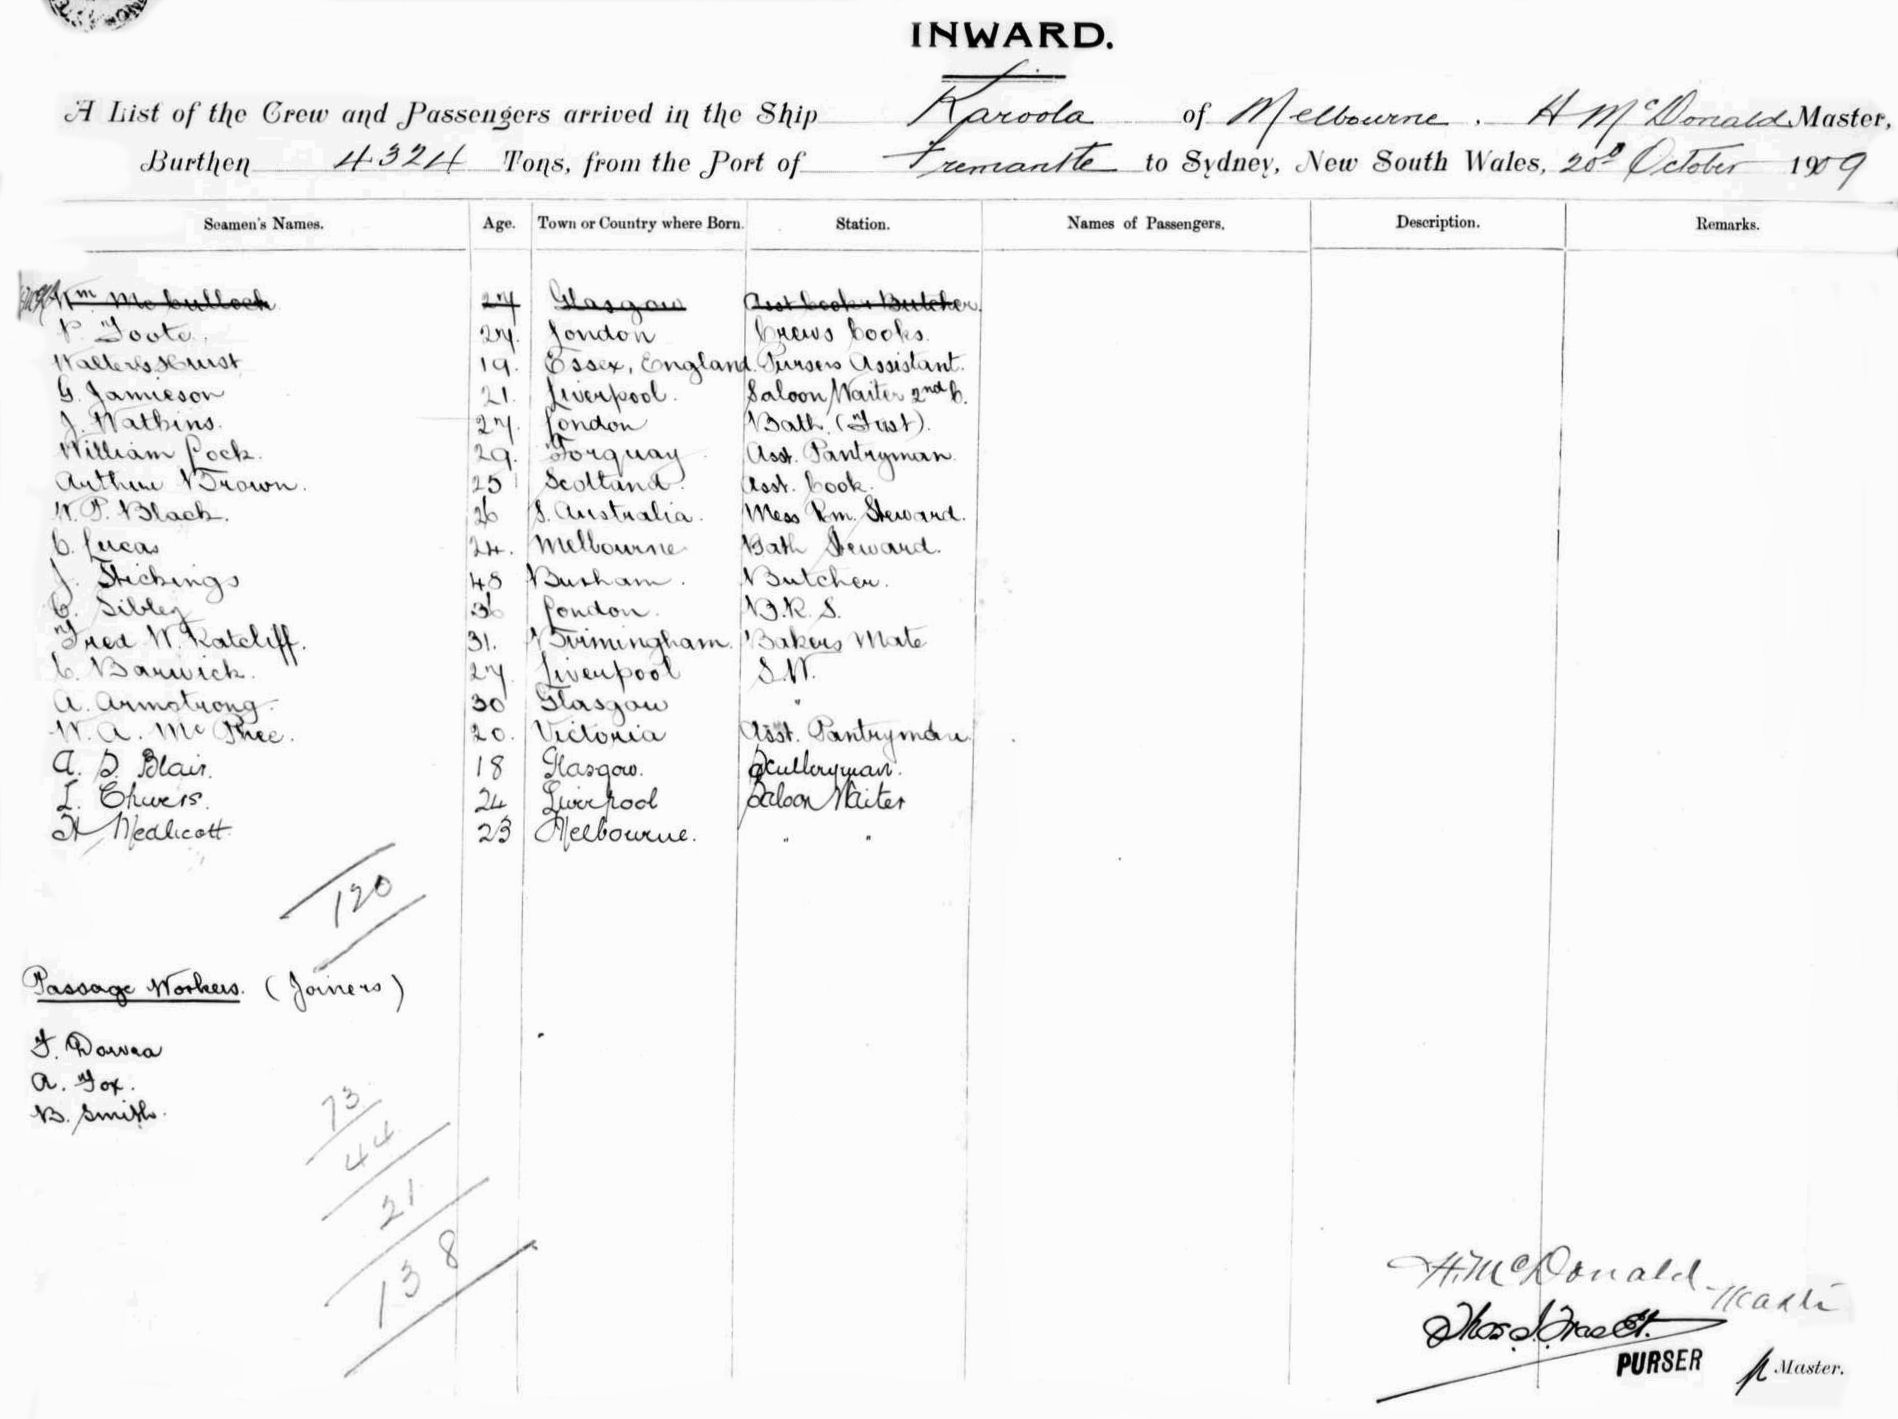 INWARD.
A List of the Crew and Passengers arrived in the Ship Karoola of Melbourne. H McDonald Master,
Burthen 4324 Tons, from the Port of Fremantle to Sydney, New South Wales, 20th October 1909
Seamen's Names. Age. Town or Country where Born. Station. Names of Passengers. Description. Remarks.
Wm McCulloch 27 Glasgow Asst Cook & Butcher.
P. Foote. 27. London Crews Cooks.
Walter Hurst 19. Essex, England. Pursers Assistant.
G. Jamieson 21. Liverpool. Saloon Waiter 2nd C.
J. Watkins. 27. London Bath. (First).
William Cock. 29. Torquay Asst. Pantryman
Arthur Brown. 25 Scotland. Asst. Cook.
W. P. Black. 26 S. Australia. Mess Rm. Steward.
C. Lucas 24. Melbourne Bath Steward.
J. Stickings 48 Butcher.
C. Sibley 36 London. B.R.S.
Fred W. Ratcliff. 31. Birmingham. Bakers Mate
C. Barwick. 27 Liverpool S.W.
A. Armstrong. 30 Glasgow "
W. A. McPhee. 20. Victoria Asst. Pantryman
A. D. Blair. 18 Glasgow. Sculleryman.
L. Chivers. 24 Liverpool Saloon Waiter
H Medlicott 23 Melbourne. " "
120
Passage Workers. (Joiners)
F.
A. Fox.
B. Smith.
73
44
21
138
H. McDonald Master
Thos
PURSER
p Master.